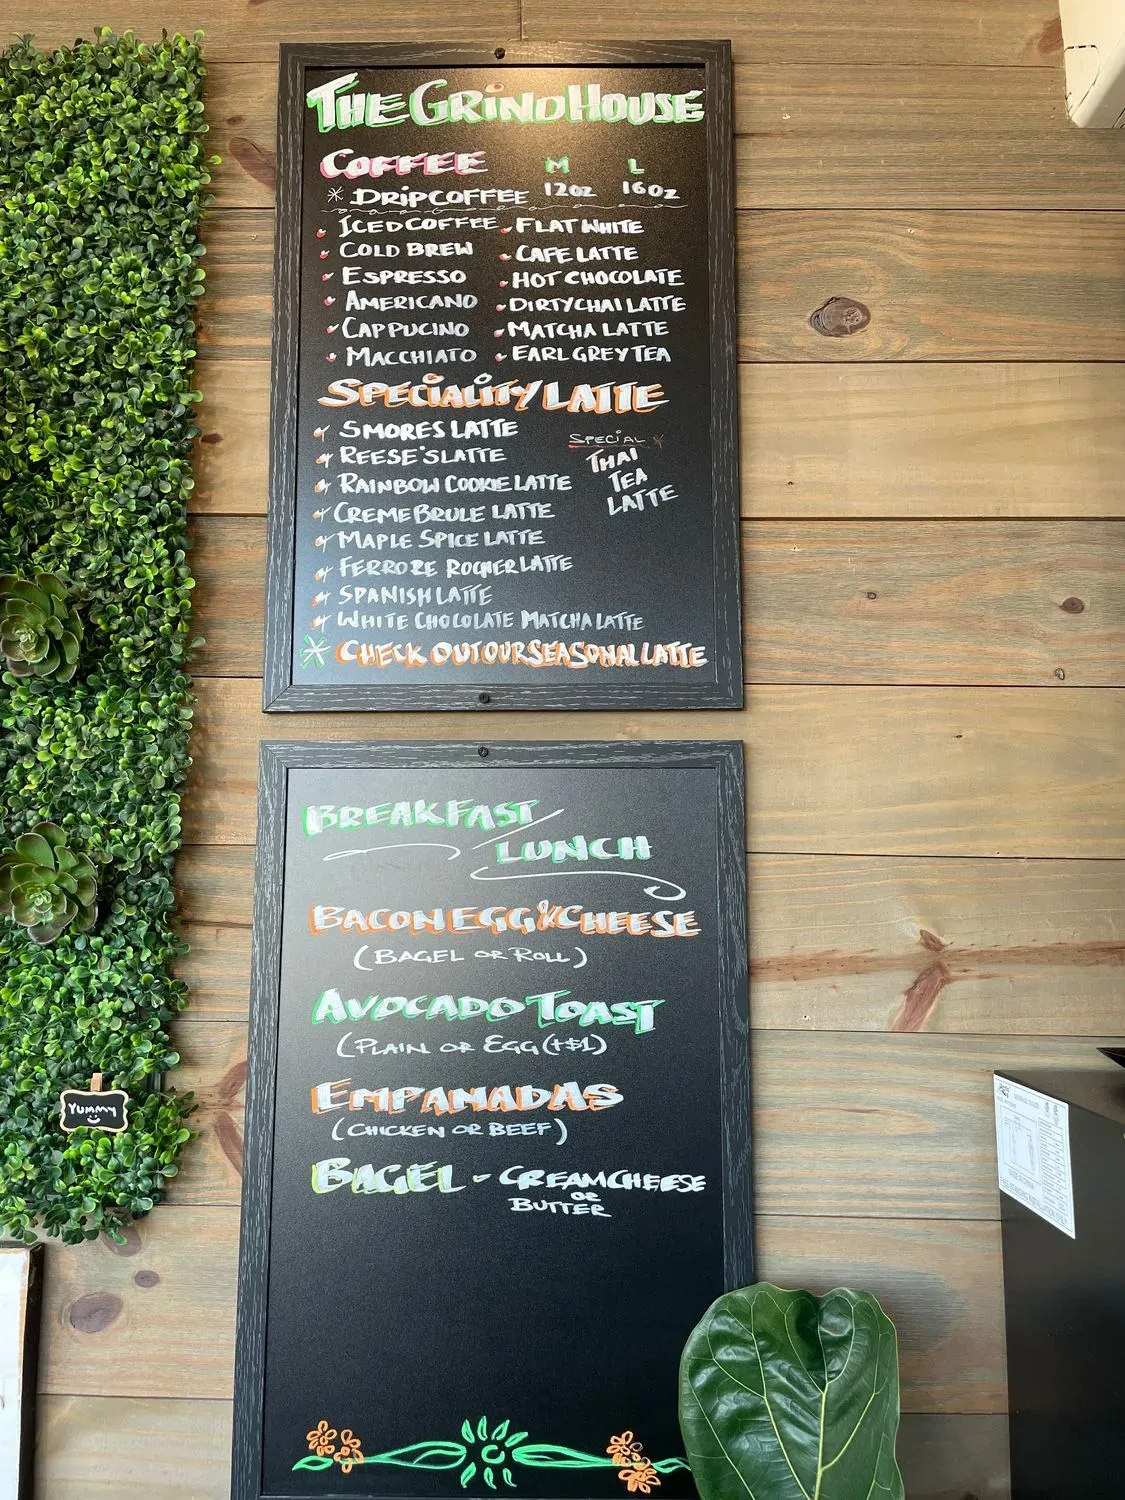 THE GRIND HOUSE
COFFEE M L
* DRIP COFFEE 12oz 16oz
ICED COFFEE
COLD BREW
ESPRESSO
AMERICANO
CAPPUCINO
MACCHIATO
FLAT WHITE
CAFE LATTE
HOT CHOCOLATE
DIRTY CHAI LATTE
MATCHA LATTE
EARL GREY TEA
SPECIALITY LATTE
SMORES LATTE
REESE'S LATTE
RAINBOW COOKIE LATTE
CREME BRULE LATTE
MAPLE SPICE LATTE
FERRORE ROCHER LATTE
SPANISH LATTE
WHITE CHOCOLATE MATCHA LATTE
SPECIAL *
THAI
TEA
LATTE
* CHECK OUT OUR SEASONAL LATTE
BREAKFAST/
LUNCH
BACON EGG & CHEESE
(BAGEL OR ROLL)
AVOCADO TOAST
(PLAIN OR EGG (+$1)
EMPANADAS
(CHICKEN OR BEEF)
BAGEL - CREAM CHEESE
OR
BUTTER
YUMMY